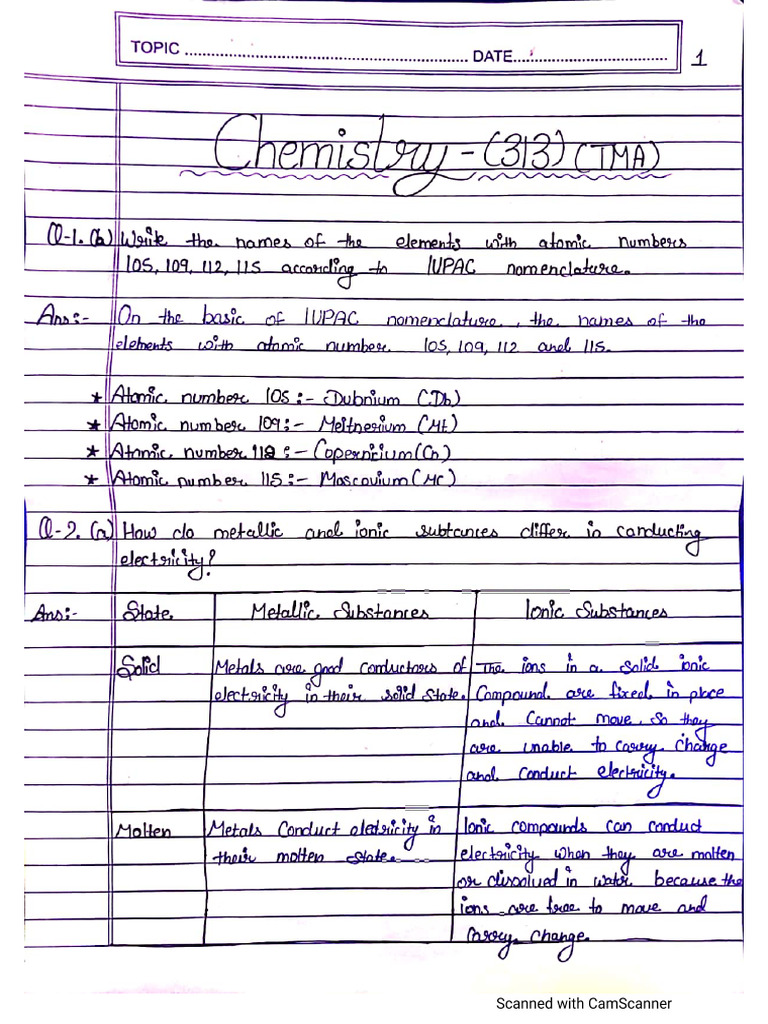 TOPIC ........................ DATE........................
1
Chemistry - (313) (TMA)
Q-1. (b) Write the names of the elements with atomic numbers
105, 109, 112, 115 according to IUPAC nomenclature.
Ans:- On the basic of IUPAC nomenclature, the names of the
elements with atomic number 105, 109, 112 and 115.
* Atomic number 105:- Dubnium (Db)
* Atomic number 109:- Meitnerium (Mt)
* Atomic number 112:- Copernicium (Cn)
* Atomic number 115:- Moscovium (Mc)
Q-2. (a) How do metallic and ionic subtances differ in conducting
electricity?
Ans:- State Metallic Substances Ionic Substances
Solid Metals are good conductors of The ions in a solid ionic
electricity in their solid state. Compound are fixed in place
and cannot move, so they
are unable to carry change
and conduct electricity.
Molten Metals conduct electricity in Ionic compounds can conduct
their molten state. electricity when they are molten
or dissolved in water because the
ions are free to move and
carry change.
Scanned with CamScanner